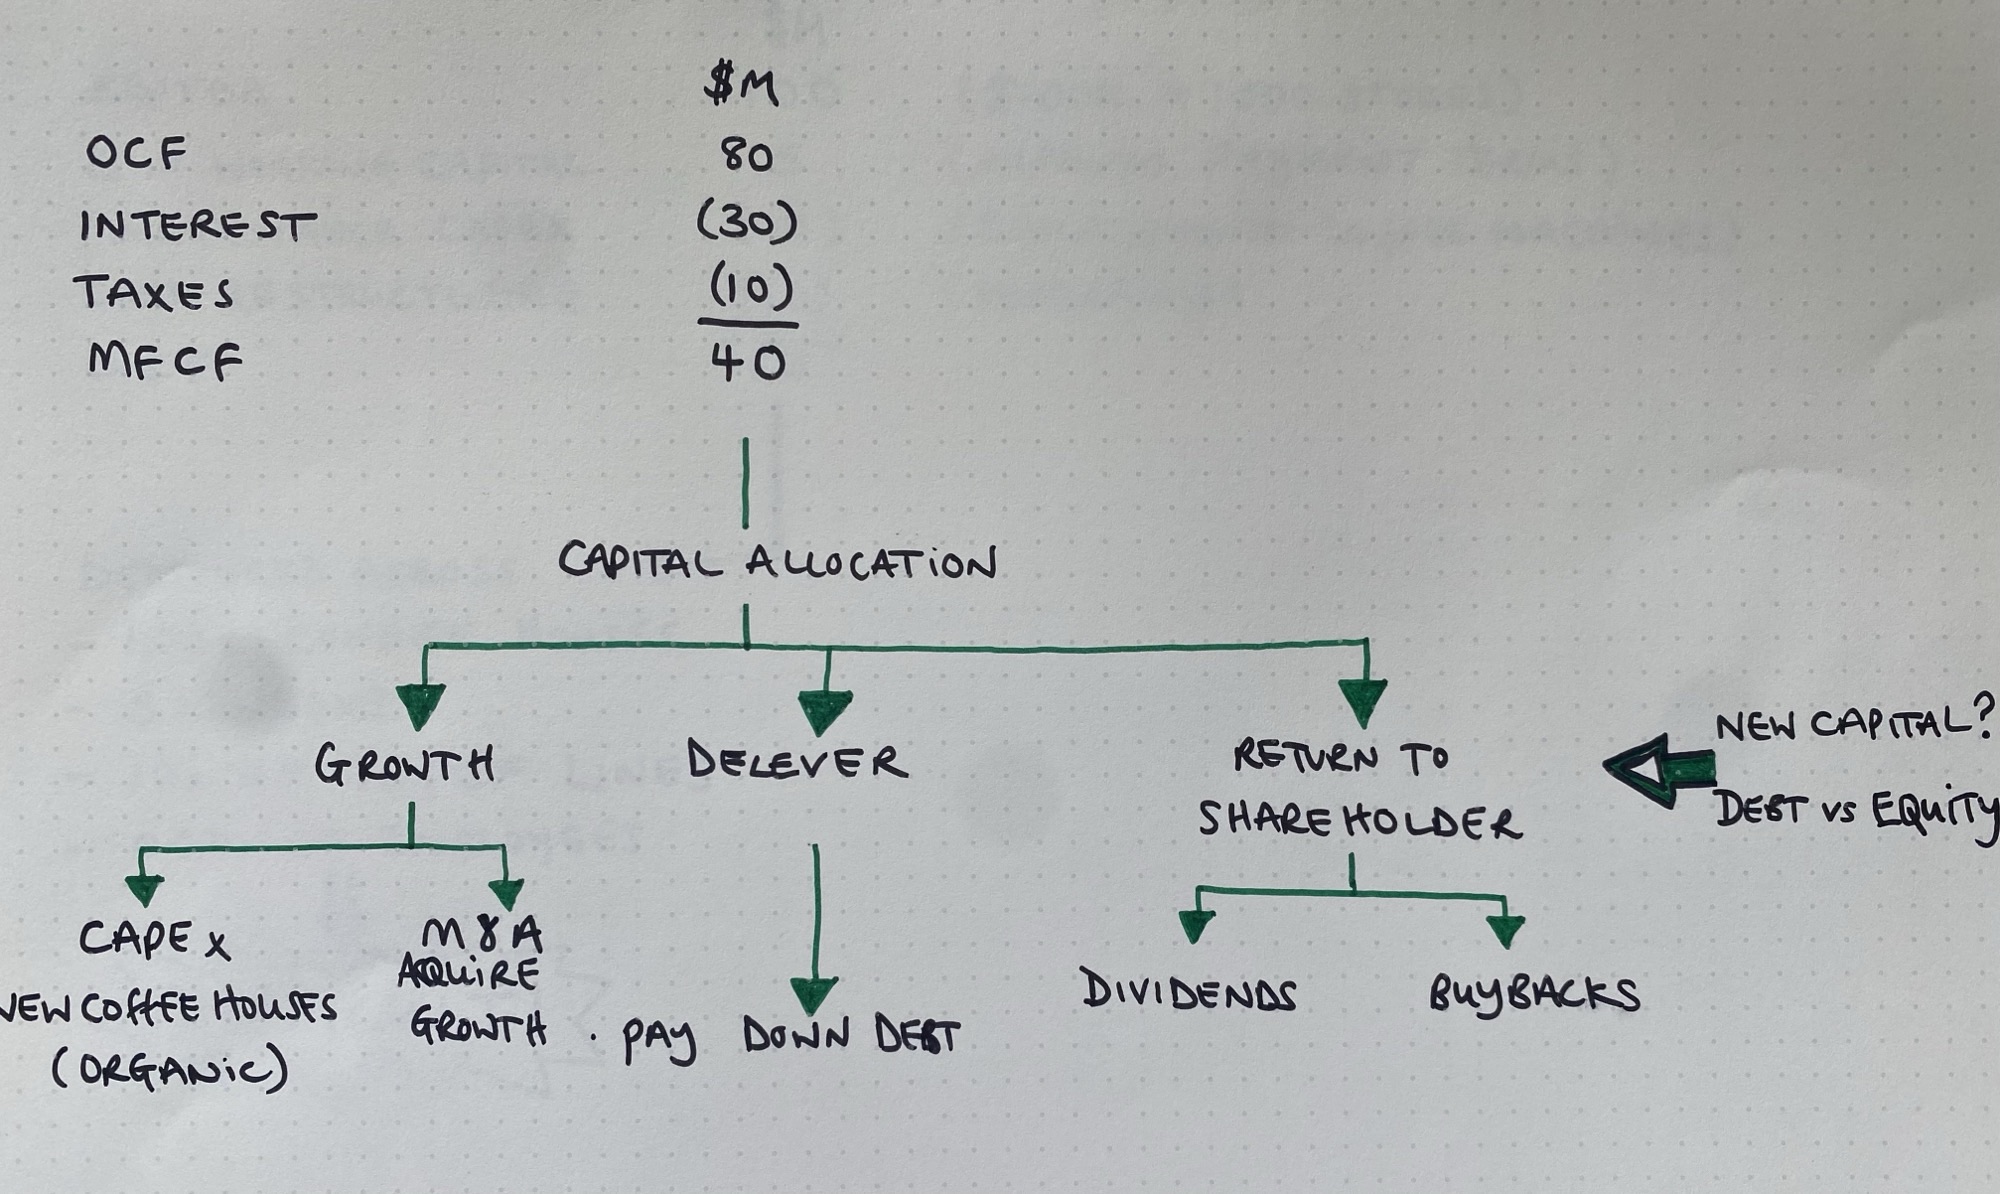 $M
OCF 80
INTEREST (30)
TAXES (10)
MFCF 40
CAPITAL ALLOCATION
GROWTH
DELEVER
RETURN TO
SHAREHOLDER
NEW CAPITAL?
DEBT VS EQUITY
CAPEX
NEW COFFEE HOUSES
(ORGANiC)
M&A
AQUIRE
GROWTH
. PAY DOWN DEBT
DIVIDENDS
BUYBACKS